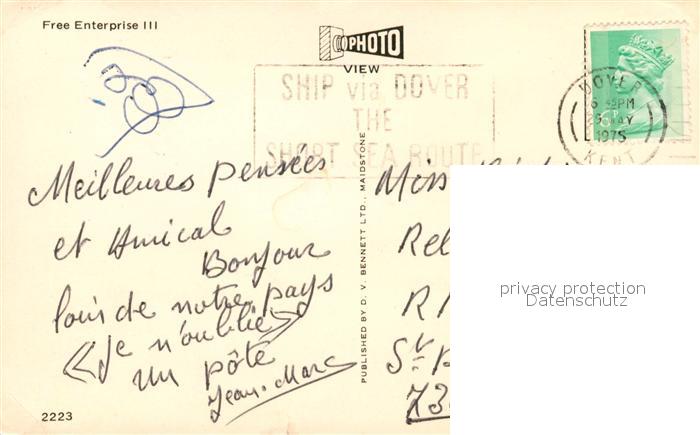 Free Enterprise III
PHOTO
VIEW
SHIP via DOVER
THE
SHORT SEA ROUTE
DOVER
PM
1975
KENT
Meilleures pensées
et Amical
Bonjour
loin de notre pays
« Je n'oublie »
un pôte
Jean-Marc
2223
PUBLISHED BY D. V. BENNETT LTD., MAIDSTONE
Miss
privacy protection
Datenschutz